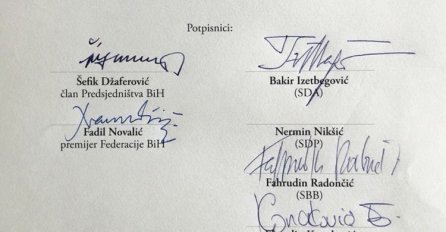 Potpisnici:
Šefik Džaferović
član Predsjedništva BiH
Fadil Novalić
premijer Federacije BiH
Bakir Izetbegović
(SDA)
Nermin Nikšić
(SDP)
Fahrudin Radončić
(SBB)